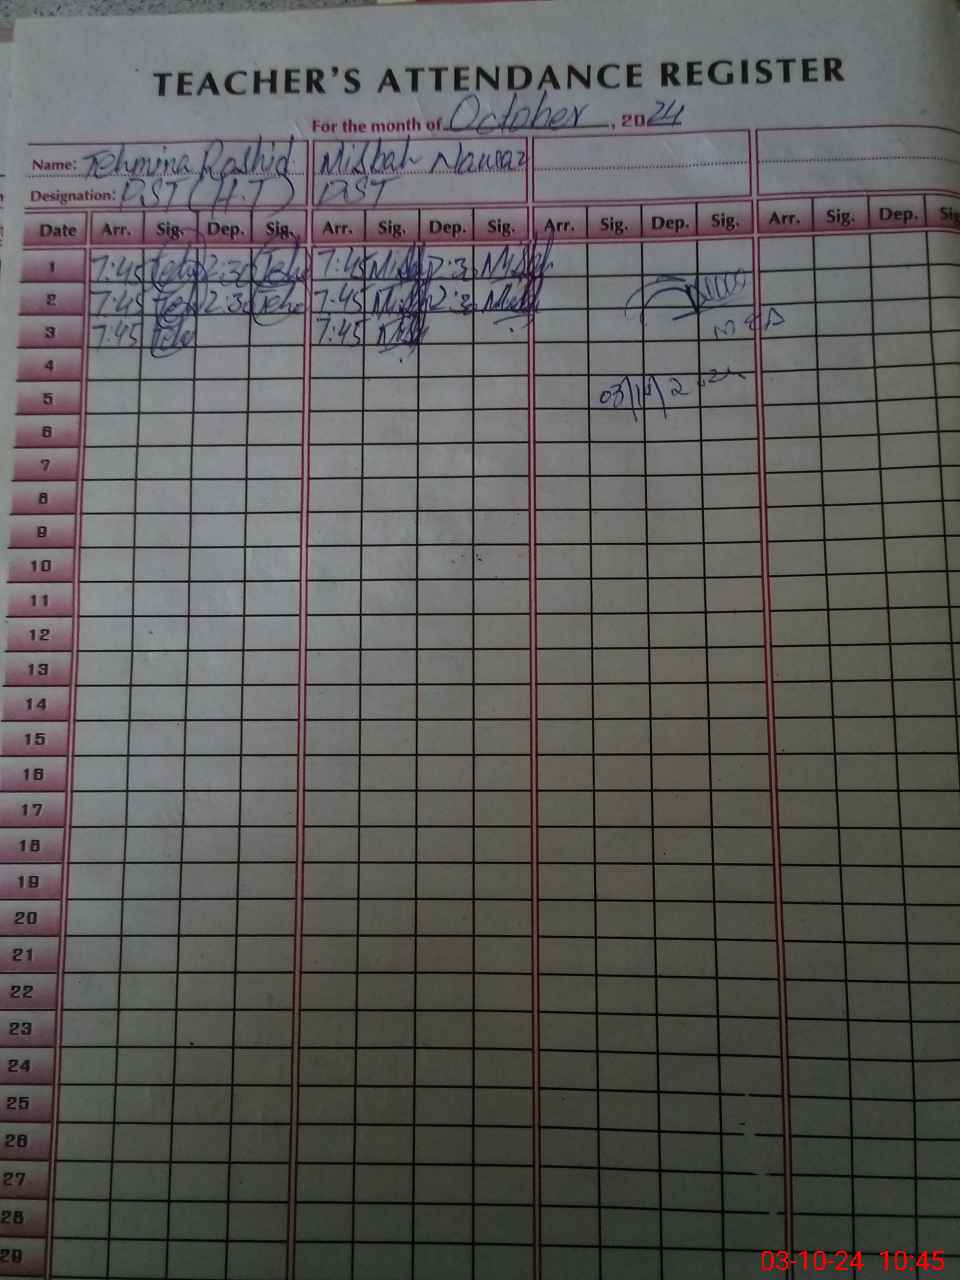 TEACHER'S ATTENDANCE REGISTER
For the month of October, 2024
Name: Tehmina Rashid Misbah Nawaz
Designation: PST (H.T) PST
Date Arr. Sig. Dep. Sig. Arr. Sig. Dep. Sig. Arr. Sig. Dep. Sig. Arr. Sig. Dep. Sig
1 7:45 2:30 7:45 2:30
2 7:45 2:30 7:45 2:30
3 7:45 7:45
4
5 03/10/2024
6
7
8
9
10
11
12
13
14
15
16
17
18
19
20
21
22
23
24
25
26
27
28
29
03-10-24 10:45